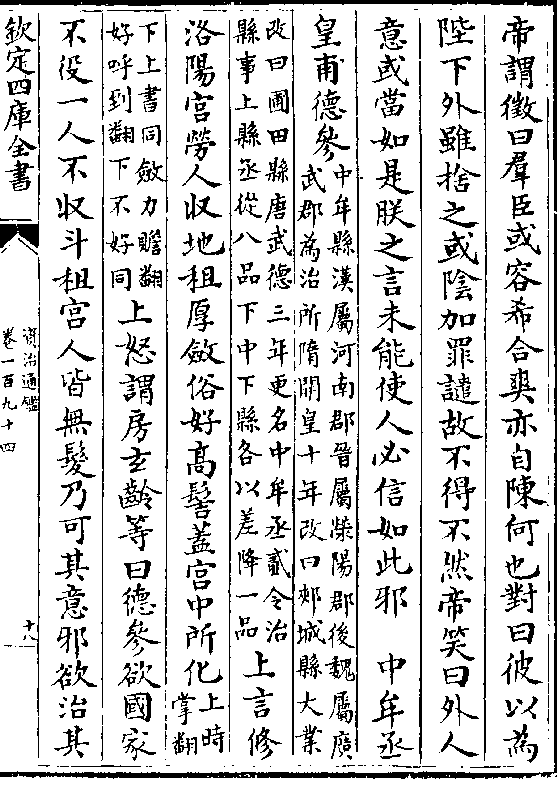 帝謂徵曰羣臣或容希合爽亦自陳何也對曰彼以為
陛下外雖捨之或陰加罪譴故不得不然帝笑曰外人
意或當如是朕之言未能使人必信如此邪　中牟丞
皇甫德參
中牟縣漢屬河南郡晉屬滎陽郡後魏屬廣
武郡為治所隋開皇十年改曰郟城縣大業
改曰圃田縣唐武德三年更名中牟丞貳令治
縣事上縣丞從八品下中下縣各以差降一品
上言修
洛陽宫勞人収地租厚斂俗好高髻蓋宫中所化
上時
掌翻
下上書同斂力贍翻
好呼到翻下不好同
上怒謂房玄齡等曰德參欲國家
不役一人不収斗租宫人皆無髮乃可其意邪欲治其
欽定四庫全書
資治通鑑
卷一百九十四
十八